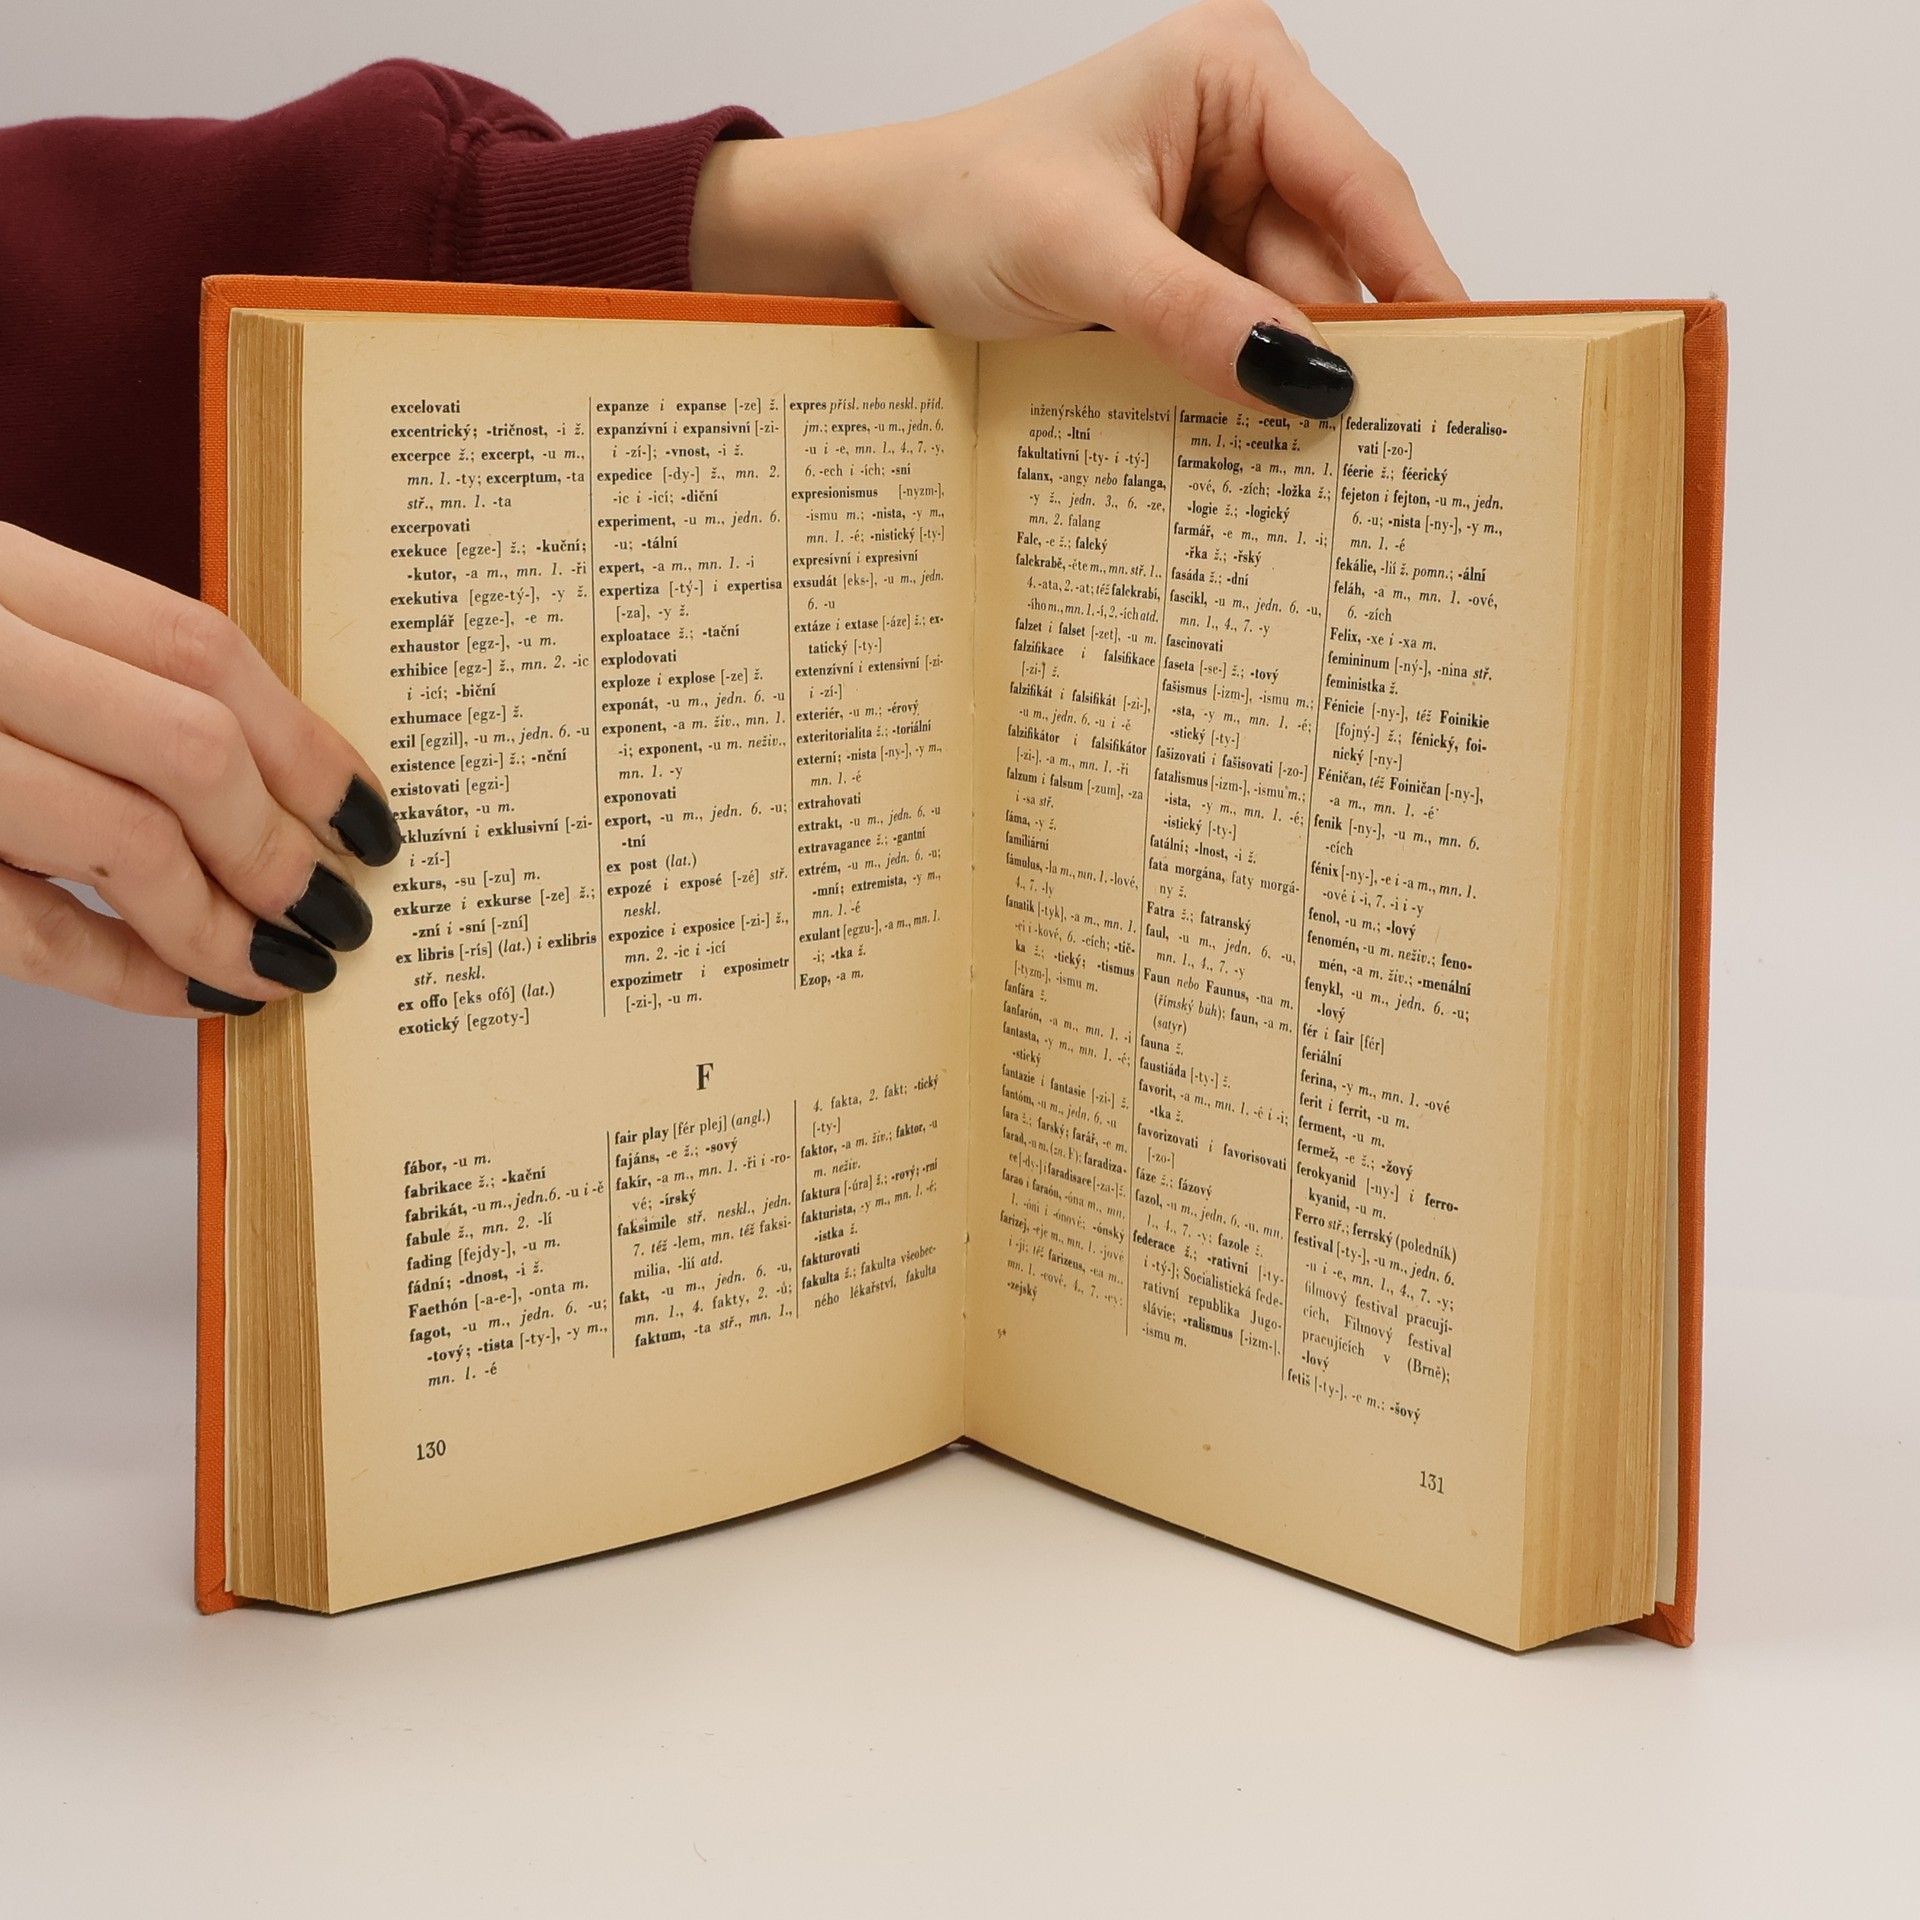 excelovati
excentrický; -tričnost, -i ž.
excerpce ž.; excerpt, -u m.,
mn. 1. -ty; excerptum, -ta
stř., mn. 1. -ta
excerpovati
exekuce [egze-] ž.; -kuční;
-kutor, -a m., mn. 1. -ři
exekutiva [egze-tý-], -y ž.
exemplář [egze-], -e m.
exhaustor [egz-], -u m.
exhibice [egz-] ž., mn. 2. -ic
i -icí; -biční
exhumace [egz-] ž.
exil [egzil], -u m., jedn. 6. -u
existence [egzi-] ž.; -nční
existovati [egzi-]
exkavátor, -u m.
exkluzívní i exklusivní [-zi-
i -zí-]
exkurs, -su [-zu] m.
exkurze i exkurse [-ze] ž.;
-zní i -sní [-zní]
ex libris [-rís] (lat.) i exlibris
stř. neskl.
ex offo [eks ofó] (lat.)
exotický [egzoty-]
expanze i expanse [-ze] ž.
expanzívní i expansivní [-zi-
i -zí-]; -vnost, -i ž.
expedice [-dy-] ž., mn. 2.
-ic i -icí; -diční
experiment, -u m., jedn. 6.
-u; -tální
expert, -a m., mn. 1. -i
expertiza [-tý-] i expertisa
[-za], -y ž.
exploatace ž.; -tační
explodovati
exploze i explose [-ze] ž.
exponát, -u m., jedn. 6. -u
exponent, -a m. živ., mn. 1.
-i; exponent, -u m. neživ.,
mn. 1. -y
exponovati
export, -u m., jedn. 6. -u;
-tní
ex post (lat.)
expozé i exposé [-zé] stř.
neskl.
expozice i exposice [-zi-] ž.,
mn. 2. -ic i -icí
expozimetr i exposimetr
[-zi-], -u m.
expres přísl. nebo neskl. příd.
jm.; expres, -u m., jedn. 6.
-u i -e, mn. 1., 4., 7. -y,
6. -ech i -ích; -sní
expresionismus [-nyzm-],
-ismu m.; -nista, -y m.,
mn. 1. -é; -nistický [-ty-]
expresívní i expresivní
exsudát [eks-], -u m., jedn.
6. -u
extáze i extase [-áze] ž.; ex-
tatický [-ty-]
extenzívní i extensivní [-zi-
i -zí-]
exteriér, -u m.; -érový
exteritorialita ž.; -toriální
externí; -nista [-ny-], -y m.,
mn. 1. -é
extrahovati
extrakt, -u m., jedn. 6. -u
extravagance ž.; -gantní
extrém, -u m., jedn. 6. -u;
-mní; extremista, -y m.,
mn. 1. -é
exulant [egzu-], -a m., mn. 1.
-i; -tka ž.
Ezop, -a m.
F
fábor, -u m.
fabrikace ž.; -kační
fabrikát, -u m., jedn. 6. -u i -ě
fabule ž., mn. 2. -lí
fading [fejdy-], -u m.
fádní; -dnost, -i ž.
Faethón [-a-e-], -onta m.
fagot, -u m., jedn. 6. -u;
-tový; -tista [-ty-], -y m.,
mn. 1. -é
fair play [fér plej] (angl.)
fajáns, -e ž.; -sový
fakír, -a m., mn. 1. -ři i -ro-
vé; -írský
faksimile stř. neskl., jedn.
7. též -lem, mn. též faksi-
milia, -lií atd.
fakt, -u m., jedn. 6. -u,
mn. 1., 4. fakty, 2. -ů;
faktum, -ta stř., mn. 1.,
4. fakta, 2. fakt; -tický
[-ty-]
faktor, -a m. živ.; faktor, -u
m. neživ.
faktura [-úra] ž.; -rový; -rní
fakturista, -y m., mn. 1. -é;
-istka ž.
fakturovati
fakulta ž.; fakulta všeobec-
ného lékařství, fakulta
130
inženýrského stavitelství
apod.; -ltní
fakultativní [-ty- i -tý-]
falanx, -angy nebo falanga,
-y ž., jedn. 3., 6. -ze,
mn. 2. falang
Falc, -e ž.; falcký
falckrabě, -ěte m., mn. stř. 1.,
4. -ata, 2. -at; též falckrabí,
-ího m., mn. 1. -í, 2. -ích atd.
falzet i falset [-zet], -u m.
falzifikace i falsifikace
[-zi-] ž.
falzifikát i falsifikát [-zi-],
-u m., jedn. 6. -u i -ě
falzifikátor i falsifikátor
[-zi-], -a m., mn. 1. -ři
falzum i falsum [-zum], -za
i -sa stř.
fáma, -y ž.
familiární
fámulus, -la m., mn. 1. -lové,
4., 7. -ly
fanatik [-tyk], -a m., mn. 1.
-ci i -kové, 6. -cích; -tič-
ka ž.; -tický; -tismus
[-tyzm-], -ismu m.
fanfára ž.
fanfarón, -a m., mn. 1. -i
fantasta, -y m., mn. 1. -é;
-stický
fantazie i fantasie [-zi-] ž.
fantóm, -u m., jedn. 6. -u
fara ž.; farský; farář, -e m.
farad, -u m. (zn. F); faradiza-
ce [-dy-] i faradisace [-za-] ž.
farao i faraón, -óna m., mn.
1. -óni i -ónové; -ónský
farizej, -eje m., mn. 1. -jové
i -ji; též farizeus, -ea m.,
mn. 1. -eové, 4., 7. -ey;
-zejský
farmacie ž.; -ceut, -a m.,
mn. 1. -i; -ceutka ž.
farmakolog, -a m., mn. 1.
-ové, 6. -zích; -ložka ž.;
-logie ž.; -logický
farmář, -e m., mn. 1. -i;
-řka ž.; -řský
fasáda ž.; -dní
fascikl, -u m., jedn. 6. -u,
mn. 1., 4., 7. -y
fascinovati
faseta [-se-] ž.; -tový
fašismus [-izm-], -ismu m.;
-sta, -y m., mn. 1. -é;
-stický [-ty-]
fašizovati i fašisovati [-zo-]
fatalismus [-izm-], -ismu m.;
-ista, -y m., mn. 1. -é;
-istický [-ty-]
fatální; -lnost, -i ž.
fata morgána, faty morgá-
ny ž.
Fatra ž.; fatranský
faul, -u m., jedn. 6. -u,
mn. 1., 4., 7. -y
Faun nebo Faunus, -na m.
(římský bůh); faun, -a m.
(satyr)
fauna ž.
faustiáda [-ty-] ž.
favorit, -a m., mn. 1. -é i -i;
-tka ž.
favorizovati i favorisovati
[-zo-]
fáze ž.; fázový
fazol, -u m., jedn. 6. -u, mn.
1., 4., 7. -y; fazole ž.
federace ž.; -rativní [-ty-
i -tý-]; Socialistická fede-
rativní republika Jugo-
slávie; -ralismus [-izm-],
-ismu m.
federalizovati i federaliso-
vati [-zo-]
féerie ž.; féerický
fejeton i fejton, -u m., jedn.
6. -u; -nista [-ny-], -y m.,
mn. 1. -é
fekálie, -lií ž. pomn.; -ální
feláh, -a m., mn. 1. -ové,
6. -zích
Felix, -xe i -xa m.
femininum [-ný-], -nina stř.
feministka ž.
Fénicie [-ny-], též Foinikie
[fojný-] ž.; fénický, foi-
nický [-ny-]
Féničan, též Foiničan [-ny-],
-a m., mn. 1. -é
fenik [-ny-], -u m., mn. 6.
-cích
fénix [-ny-], -e i -a m., mn. 1.
-ové i -i, 7. -i i -y
fenol, -u m.; -lový
fenomén, -u m. neživ.; feno-
mén, -a m. živ.; -menální
fenykl, -u m., jedn. 6. -u;
-lový
fér i fair [fér]
feriální
ferina, -y m., mn. 1. -ové
ferit i ferrit, -u m.
ferment, -u m.
fermež, -e ž.; -žový
ferokyanid [-ny-] i ferro-
kyanid, -u m.
Ferro stř.; ferrský (poledník)
festival [-ty-], -u m., jedn. 6.
-u i -e, mn. 1., 4., 7. -y;
filmový festival pracují-
cích, Filmový festival
pracujících v (Brně);
-lový
fetiš [-ty-], -e m.; -šový
131